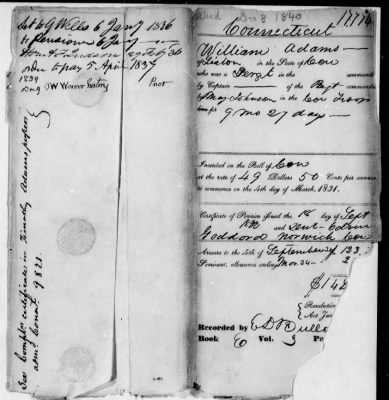 Let to G Wells 6 Jany 1836
to Pensioner 6 Jany
29 Feby 36
order to pay 5 April 1837
1839
Aug J W Weaver history
Poor
See Compltn certificate in Timothy Adams papers
admr Connt 9821.
Died Dec 8 1840
17176
Connecticut
William Adams
of Lisbon in the State of Con
who was a Sergt in the commanded
by Captain of the Regt commanded
by Maj Johnson in the Con Troops
for 9 mo 27 days
Inscribed on the Roll of Con
at the rate of 49 Dollars 50 Cents per annum
to commence on the 4th day of March, 1831.
Certificate of Pension issued the 18 day of Sept
and sent Edwin
Goddard Norwich Con
Arrears to the 4th of September 123.
Semi-anl. allowance ending Mar. 34 2
$148
Revolution
Act June
Recorded by E D B
Book E Vol. 3 Pa